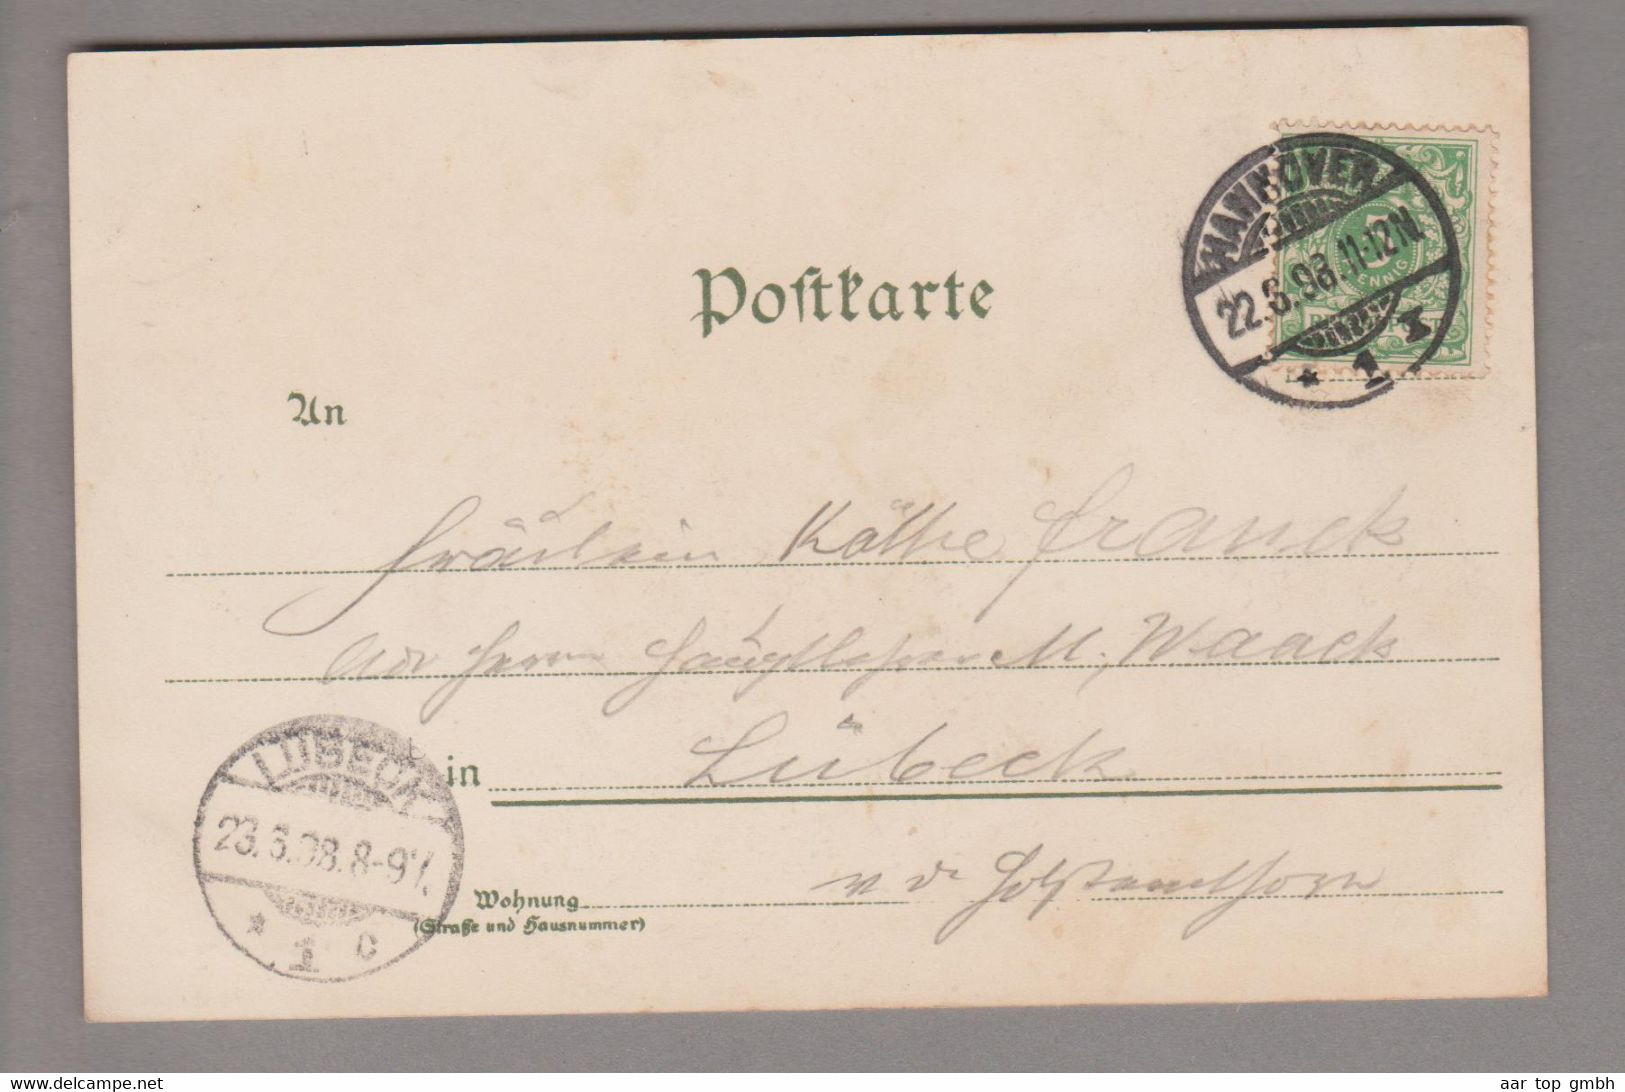 Postkarte
HANNOVER
22.6.98.11-12N.
* 1 x
5
PFENNIG
REICHSPOST
An
Fräulein Käthe Franck
Adr Herrn Hauptlehrer M. Waack
in Lübeck
LÜBECK
23.6.98.8-9V.
* 1 c
Wohnung v. d. Holstenthor
(Straße und Hausnummer)
www.delcampe.net
aar top gmbh